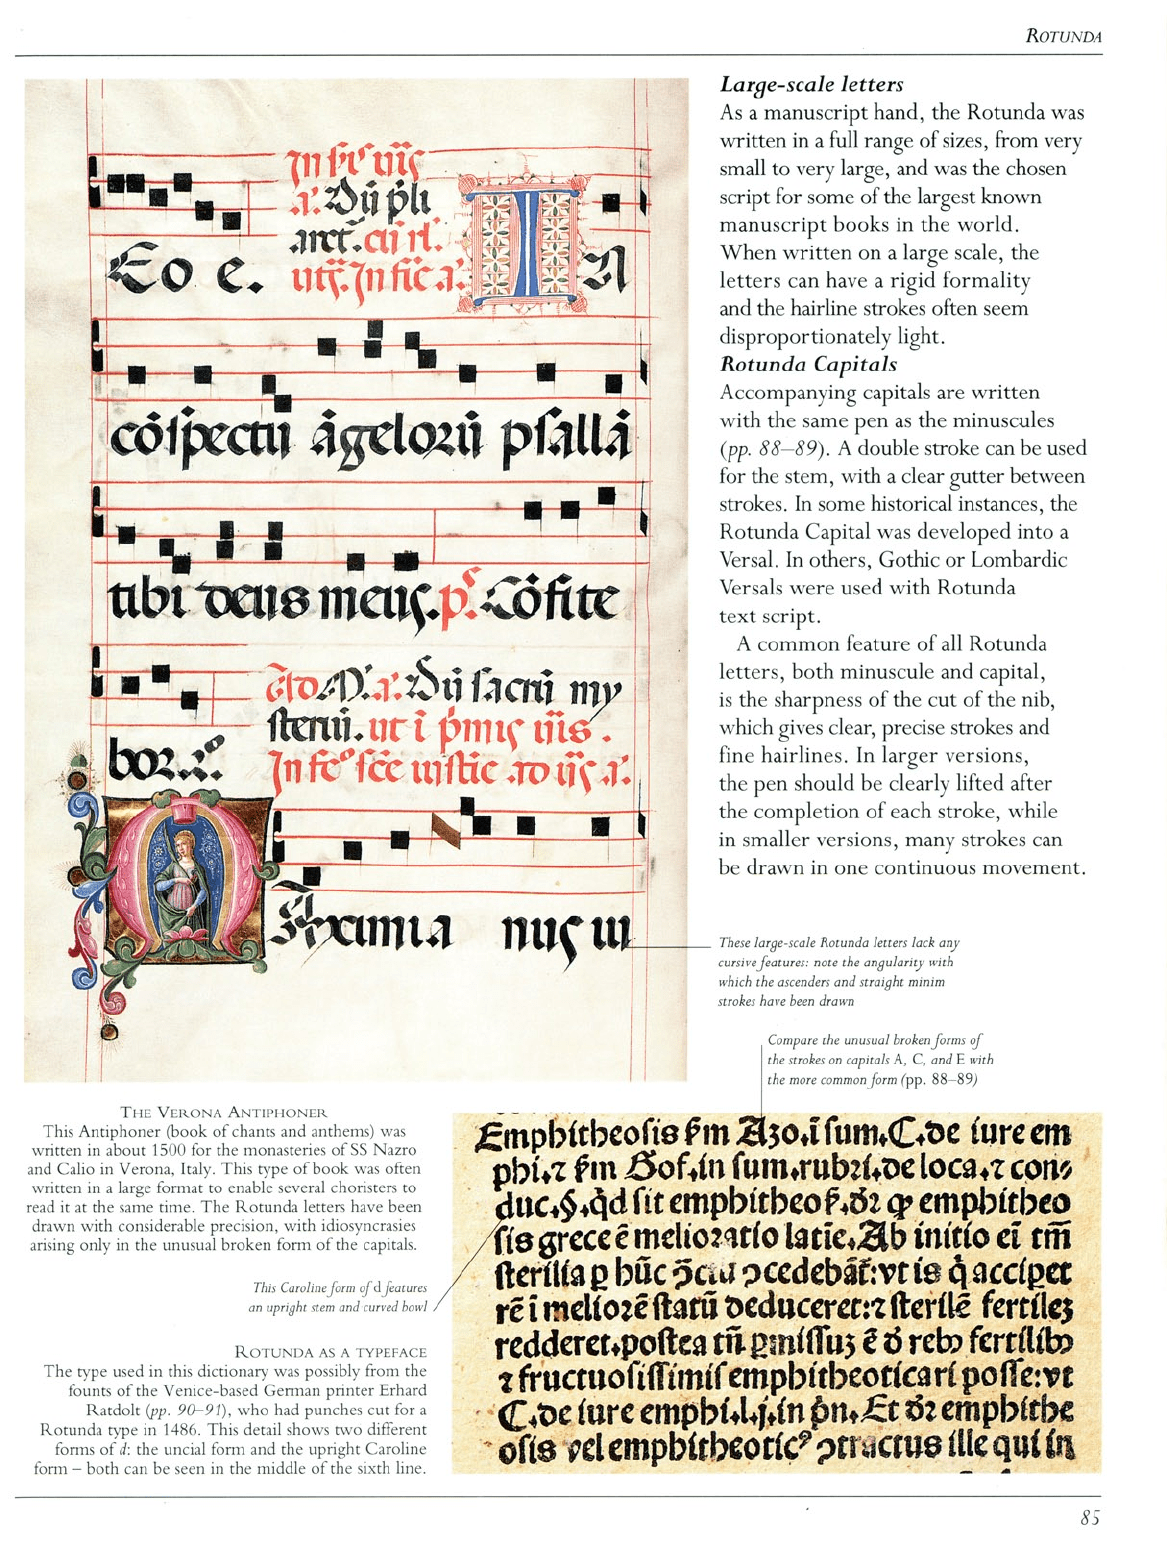 ROTUNDA
In fe uiis
a. Dn pli
aret. cu rl.
Eo e.
N
cōspectu āgeloru psallā
tibi deus meus. p. Cōfite
Dn sacru my
steriu. ut i pmis uiis.
bor.
ximia nus iu
Large-scale letters
As a manuscript hand, the Rotunda was
written in a full range of sizes, from very
small to very large, and was the chosen
script for some of the largest known
manuscript books in the world.
When written on a large scale, the
letters can have a rigid formality
and the hairline strokes often seem
disproportionately light.
Rotunda Capitals
Accompanying capitals are written
with the same pen as the minuscules
(pp. 88–89). A double stroke can be used
for the stem, with a clear gutter between
strokes. In some historical instances, the
Rotunda Capital was developed into a
Versal. In others, Gothic or Lombardic
Versals were used with Rotunda
text script.
A common feature of all Rotunda
letters, both minuscule and capital,
is the sharpness of the cut of the nib,
which gives clear, precise strokes and
fine hairlines. In larger versions,
the pen should be clearly lifted after
the completion of each stroke, while
in smaller versions, many strokes can
be drawn in one continuous movement.
These large-scale Rotunda letters lack any
cursive features: note the angularity with
which the ascenders and straight minim
strokes have been drawn
Compare the unusual broken forms of
the strokes on capitals A, C, and E with
the more common form (pp. 88–89)
THE VERONA ANTIPHONER
This Antiphoner (book of chants and anthems) was
written in about 1500 for the monasteries of SS Nazro
and Calio in Verona, Italy. This type of book was often
written in a large format to enable several choristers to
read it at the same time. The Rotunda letters have been
drawn with considerable precision, with idiosyncrasies
arising only in the unusual broken form of the capitals.
This Caroline form of d features
an upright stem and curved bowl
ROTUNDA AS A TYPEFACE
The type used in this dictionary was possibly from the
founts of the Venice-based German printer Erhard
Ratdolt (pp. 90–91), who had punches cut for a
Rotunda type in 1486. This detail shows two different
forms of d: the uncial form and the upright Caroline
form – both can be seen in the middle of the sixth line.
Emphitheosis ẜm Azo.ī sum.C.de iure em
phi.⁊ ẜm Bof.in sum.rubꝛi.de loca.⁊ con
duc.§.q̄d sit emphitheoẜ.dꝛ ꝙ emphitheo
sis grece ē melioꝛatio latīe.Ab initio eī tm̄
sterilia ꝑ hūc ↄ̄ctu ↄcedebāt:vt is q̇ acciperet
rē i melioꝛē statū deduceret:⁊ sterilē fertilez
redderet.postea tn̄ ꝑmissuz ē d rebꝰ fertilibꝰ
⁊ fructuosissimis emphitheoticari posse:vt
C.de iure emphi.l.j.in pn̄.Et dꝛ emphithe
osis vel emphitheoticꝰ ↄtractus ille qui in
85